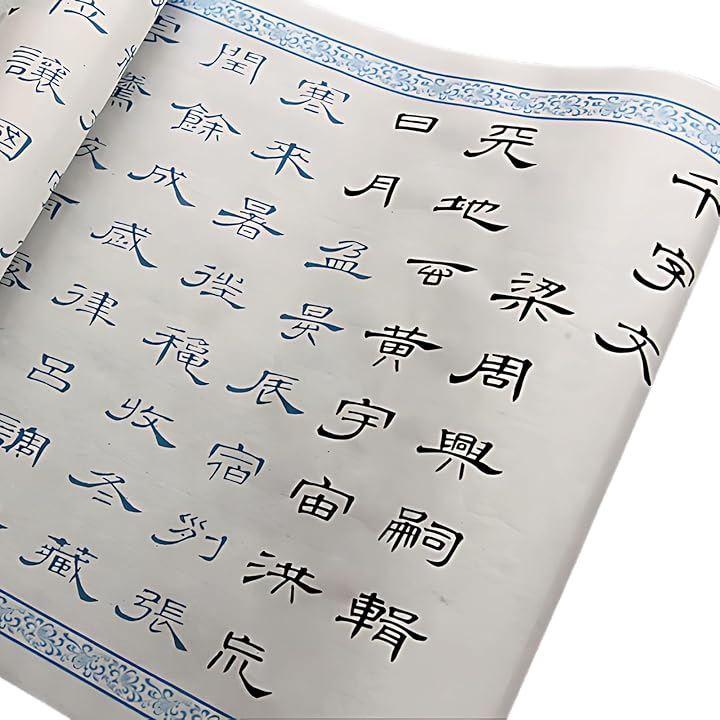 千字文
梁周興嗣輯
天地玄黃宇宙洪荒
日月盈昃辰宿列張
寒來暑往穐收冬藏
閏餘成歲律呂調
雲騰致
位讓國